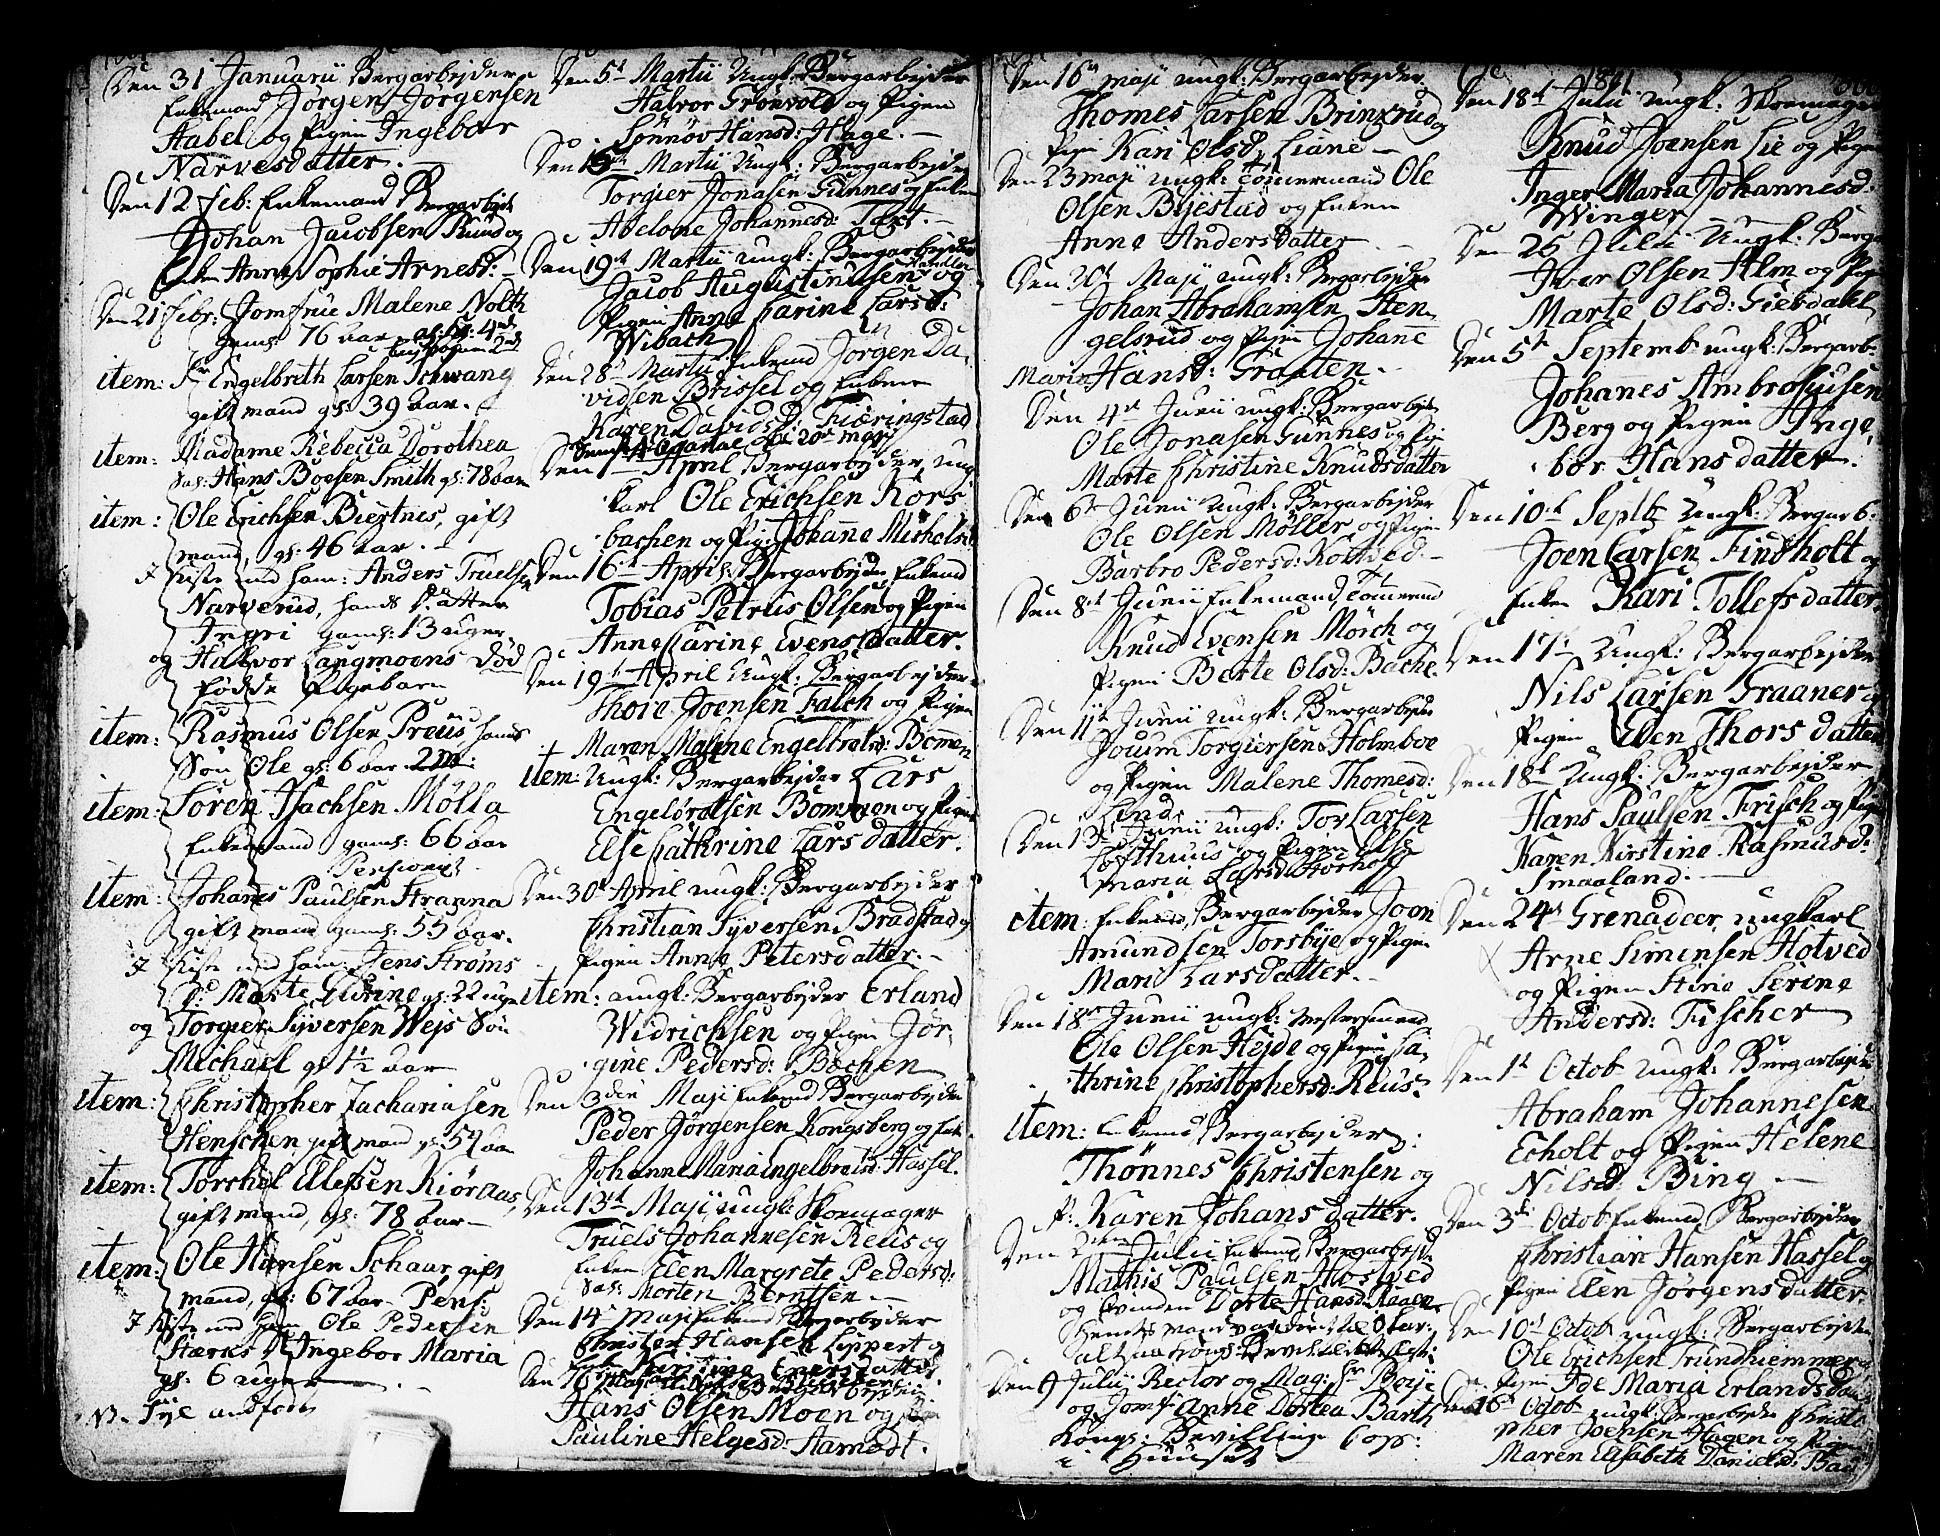 Den 31 Januarii Bergarbejder
Enkemand Jørgen Jørgensen
Aabel og Pigen Ingebor
Narvesdatter.
Den 12 Feb: Enkemand Bergarbejd
Johan Jacobsen Ruud og
Enken Anne Sophie Arnesd:
Den 21 Febr: Jomfrue Malene Nolth
gaml: 76 aar
item: Sr Engelbrith Larsen Schwang
gift mand gl: 39 aar.
item: Madame Rebecca Dorothea
Sal: Hans Boesen Smith gl: 78 aar
item: Ole Erichsen Biertnes, gift
mand, gl: 46 aar.
Kiste med ham: Anders Truelsen
Narverud, hands Datter
Ingri gaml: 13 uger.
og Halvor Langmoens død
fødde Pigebarn
item: Rasmus Olsen Preus hands
Søn Ole gl: 6 aar
item: Søren Isachsen Mølla
Enkemand gaml: 66 aar
Pensionert
item: Johanes Paulsen Stranna
gift mand gaml: 55 aar.
Kiste med ham: Jens Strøms
D: Marte Elurine gl: 22 uger
og Torgier Syversen Wejs Søn
Michael gl: 1½ aar
item: Christopher Zachariasen
Henschen gift mand gl: 59 aar
item: Torchel Ellefsen Kiøraas,
gift mand, gl: 78 aar
item: Ole Hansen Schaar gift
mand, gl: 67 aar Pens:
Kiste med ham Ole Pedersen
Stærks D Ingebor Maria
gl: 6 uger
Den 5t Martii Ungk: Bergarbejder
Halvor Grønvold og Pigen
Sønnøv Hansd: Hage.
Den 15de Martii Ungk: Bergarbejder
Torgier Jonasen Gunnes og Enken
Abelone Johannesd: Taxt.
Den 19t Martii ungk: Bergarbejder
Jacob Augustinusen og
Pigen Anne Carine Larsd:
Wibach
Den 28t Martii Enkemd Jørgen Da
vidsen Brissel og Enken
Karen Davids D Fiæringstad
Den 1t April Bergarbejder ung
karl Ole Erichsen Kors
bachen og Pig: Johanne Michelsd
Den 16t April: Bergarbejder Enkemd
Tobias Petrus Olsen og Pigen
Anne Carine Evensdatter.
Den 19t April Ungk: Bergarbejder
Thore Joensen Falch og Pigen
Maren Malene Engelbrethsd: Bommen
item: Ungk: Bergarbejder Lars
Engelbretsen Bommen og Pigen
Else Cathrine Larsdatter.
Den 30t April ungk: Bergarbejder
Christian Syversen Bradstad og
Pigen Anne Petersdatter.
item: ungk: Bergarbejder Erland
Widrichsen og Pigen Jør
gine Pedersd: Bachen
Den 3die Maji Enkemd Bergarbejder
Peder Jørgensen Kongsberg og Enk
Johanne Maria Ingelbretsd: Hassel.
Den 13t Maji ungk: Skoemager
Truels Johannesen Reus og
Enken Elen Margrete Pedersd:
Sal: Morten Berntsen
Den 14 Maji Enkemd Bergarbejder
Christen Hansen Lippert og
Den 16
Hans Olsen Moen og
Pauline Helgesd: Aamodt.
Den 16 maji ungk: Bergarbejder
Thomes Larsen Brinkrud og
Pigen Kari Olsd, Liane
Den 23 maji ungk: Tømmermand Ole
Olsen Byestad og Enken
Anne Andersdatter
Den 30t Maji ungk: Bergarbejder
Johan Abrahamsen Sten
gelsrud og Pigen Johanne
Maria Hansd: Graaten.
Den 4d Junii ungk: Bergarbejder
Ole Jonasen Gunnes og Pigen
Marte Christine Knudsdatter
Den 6te Junii Ungk: Bergarbejder
Ole Olsen Møller og Pigen
Barbro Pedersd: Kolsved
Den 8t Junii Enkemand Tømmermd
Knud Evensen Mørch og
Pigen Berte Olsd: Bache.
Den 11t Junii Ungk: Bergarbejder
Joum Torgiersen Holmboe
og Pigen Malene Thomesd:
Lind.
Den 13t Junii ungk: Tov Larsen
Lofthuus og Pigen Else
Maria Larsd: Storhoff
item: Enkemd, Bergarbejder Joon
Amundsen Torsbye og Pigen
Mari Larsdatter.
Den 18de Junii ungk:
Ole Olsen Hejde og Pigen Ca
thrine Christophersd: Reus.
item: Enkemd Bergarbejder:
Thønnes Christensen og
P: Karen Johansdatter.
Den 2den Julii Enkemd Bergarbejder
Mathis Paulsen Hostved
og Qvinden Dorte Hansd:
Den 9 Julii Rector og Mag: Hr Boye
og Jomf: Anne Dortea Barth
Kongl: Bevilling Cop:
i Huuset
1801
Den 18d Julii ungk: Skoemager
Knud Joensen Lie og Pigen
Inger Maria Johannesd:
Winger
Den 25 Julii Ungk: Berga
Iver Olsen Alm og Pigen
Marte Olsd: Giebdahl
Den 5te Septemb ungk: Bergarb:
Johanes Ambrosiusen
Berg og Pigen Inge
bor Hansdatter.
Den 10t Septbr Ungk: Bergarb:
Joen Larsen Findholt og
Enken Kari Tollefsdatter.
Den 17de Ungk: Bergarbejder
Nils Larsen Graaner og
Pigen Elen Thorsdatter
Den 18t Ungk: Bergarbejder
Hans Paulsen Frisch og Pigen
Karen Kirstine Rasmusd:
Smaaland.
Den 24t Grenadeer, ungkarl
Arne Simensen Hotved
og Pigen Stine Serine
Andersd: Fischer
Den 1t Octob ungk: Bergarbejder
Abraham Johannesen
Echolt og Pigen Helene
Nilsd: Bing
Den 3di Octob Enkemd Bergarbejder
Christian Hansen Hassel og
Pigen Elen Jørgensdatter.
Den 10t Octob ungk: Bergarbejder
Ole Erichsen Trundhiemmer og
Pigen Ide Maria Erlandsda
Den 16t Octob ungk: Bergarbejder Christo
pher Joensen Hagen og Pigen
Maren Elisabeth Danielsd: